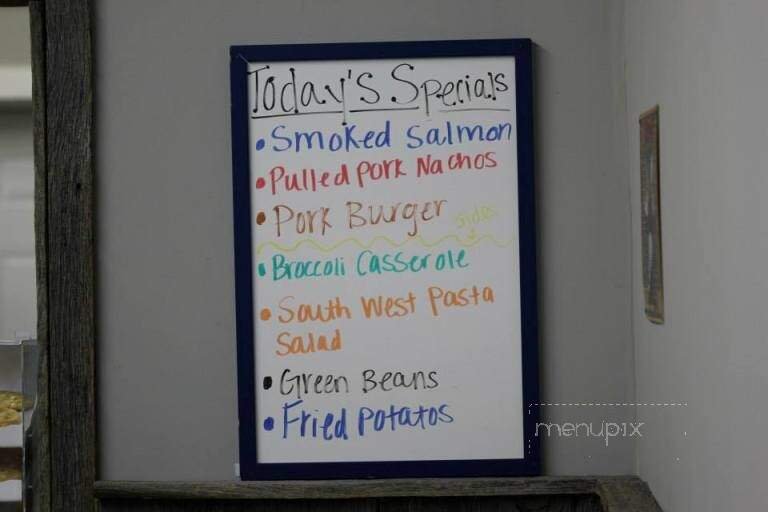 Today's Specials
• Smoked Salmon
• Pulled Pork Nachos
• Pork Burger
Sides
• Broccoli Casserole
• South West Pasta
Salad
• Green Beans
• Fried Potatos
menupix